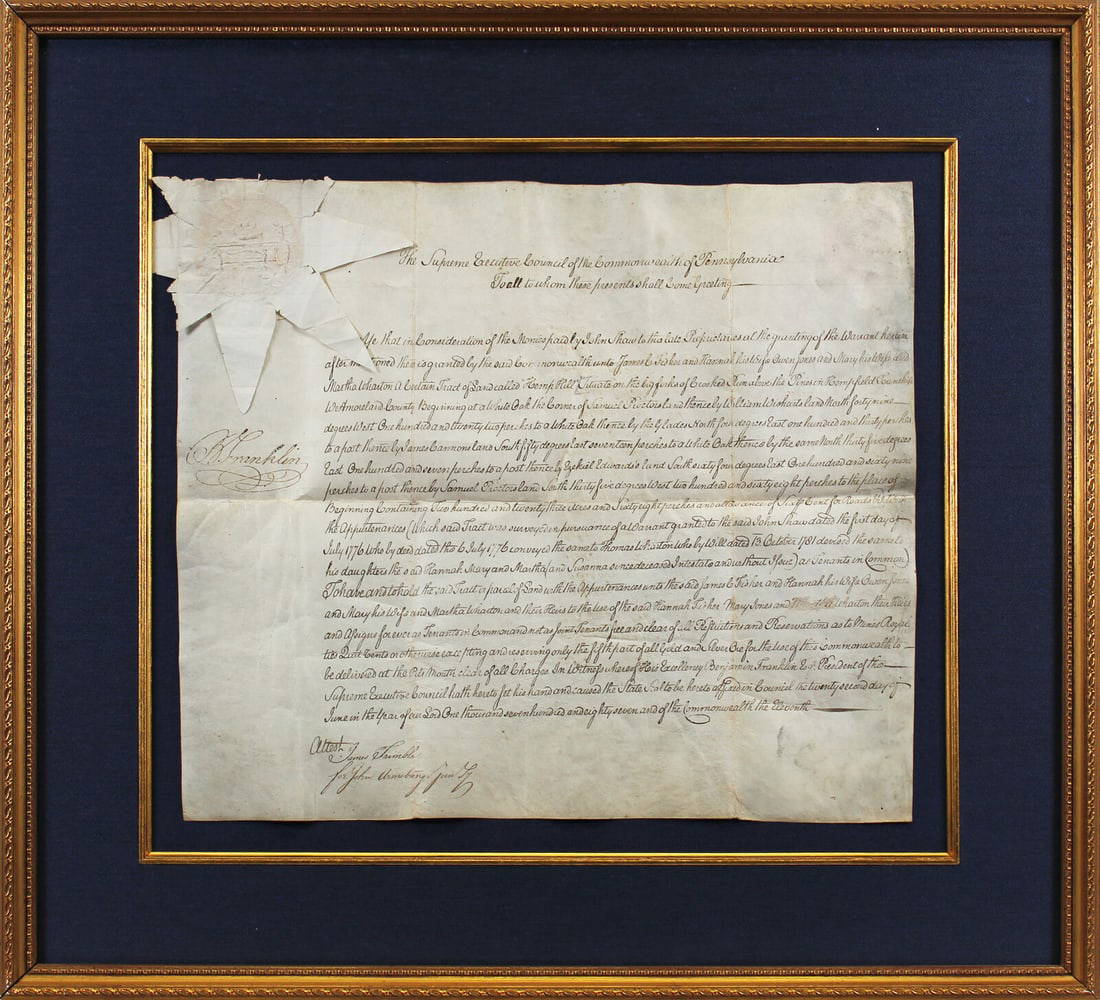 The Supreme Executive Council of the Commonwealth of Pennsylvania
To all to whom these presents shall Come Greeting
that in Consideration of the Monies paid by John Shaw to the late Proprietaries at the granting of the Warrant herein
after mentioned there is granted by the said Commonwealth unto James C Fisher and Hannah his Wife Owen Jones and Mary his Wife and
Martha Wharton A Certain Tract of Land called "Hemp Hill" Situate on the big forks of Crooked Run above the Pines in Hempfield Township
Westmoreland County Beginning at a White Oak the Corner of Samuel Proctors land thence by William land North forty nine
degrees West One hundred and twenty two perches to a White Oak thence by the Glades North four degrees East one hundred and thirty perches
to a post thence by James Cannons land South fifty degrees East seventeen perches to a White Oak thence by the same North thirty five degrees
East One hundred and seven perches to a post thence by Ezekiel Edwards's Land South sixty four degrees East One hundred and sixty nine
perches to a post thence by Samuel Proctors land South thirty five degrees West two hundred and sixty eight perches to the place of
Beginning Containing two hundred and twenty three Acres and Sixty eight perches and allowance of Six P Cent for Roads &c with
the Appurtenances (Which said Tract was surveyed in pursuance of a Warrant granted to the said John Shaw dated the first day of
July 1776 who by deed dated the 6 July 1776 conveyed the same to Thomas Wharton who by Will dated 13 October 1781 devised the same to
his daughters the said Hannah Mary and Martha (and Susanna since deceased Intestate and without Issue) as Tenants in Common)
To have and to hold the said Tract or parcel of Land with the Appurtenances unto the said James C Fisher and Hannah his Wife Owen Jones
and Mary his Wife and Martha Wharton and their Heirs to the Use of the said Hannah Fisher Mary Jones and Martha Wharton their Heirs
and Assigns forever as Tenants in Common and not as Joint Tenants free and clear of all Restrictions and Reservations as to Mines Royal
ties Quit Rents or otherwise excepting and reserving only the fifth part of all Gold and Silver Ore for the Use of this Commonwealth to
be delivered at the Pits Mouth clear of all Charges In Witness whereof His Excellency Benjamin Franklin Esq. President of the
Supreme Executive Council hath hereto set his hand and caused the State Seal to be hereto affixed in Council the twenty second day of
June in the Year of our Lord One thousand seven hundred and eighty seven and of the Commonwealth the Eleventh
B Franklin
Attest
James Trimble
for John Armstrong Junr Secy